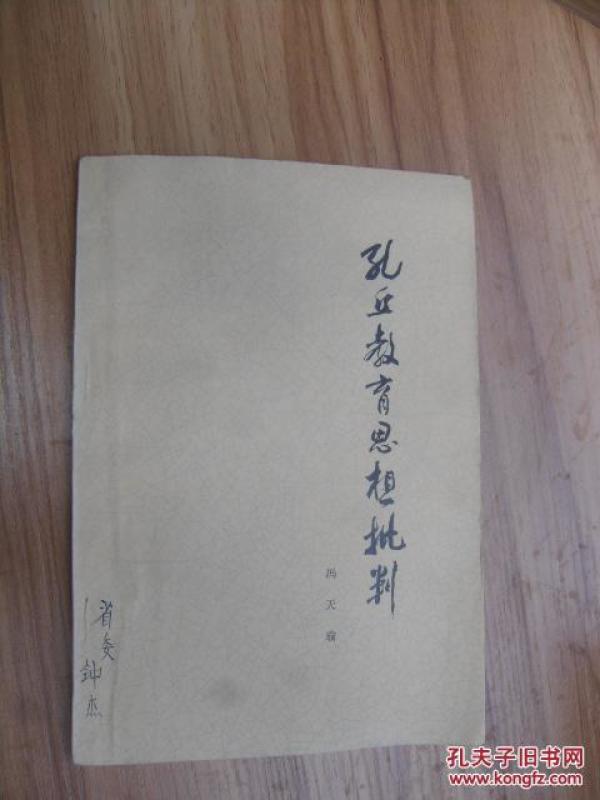 孔丘教育思想批判
冯天瑜
省委
钟杰
孔夫子旧书网
www.kongfz.com